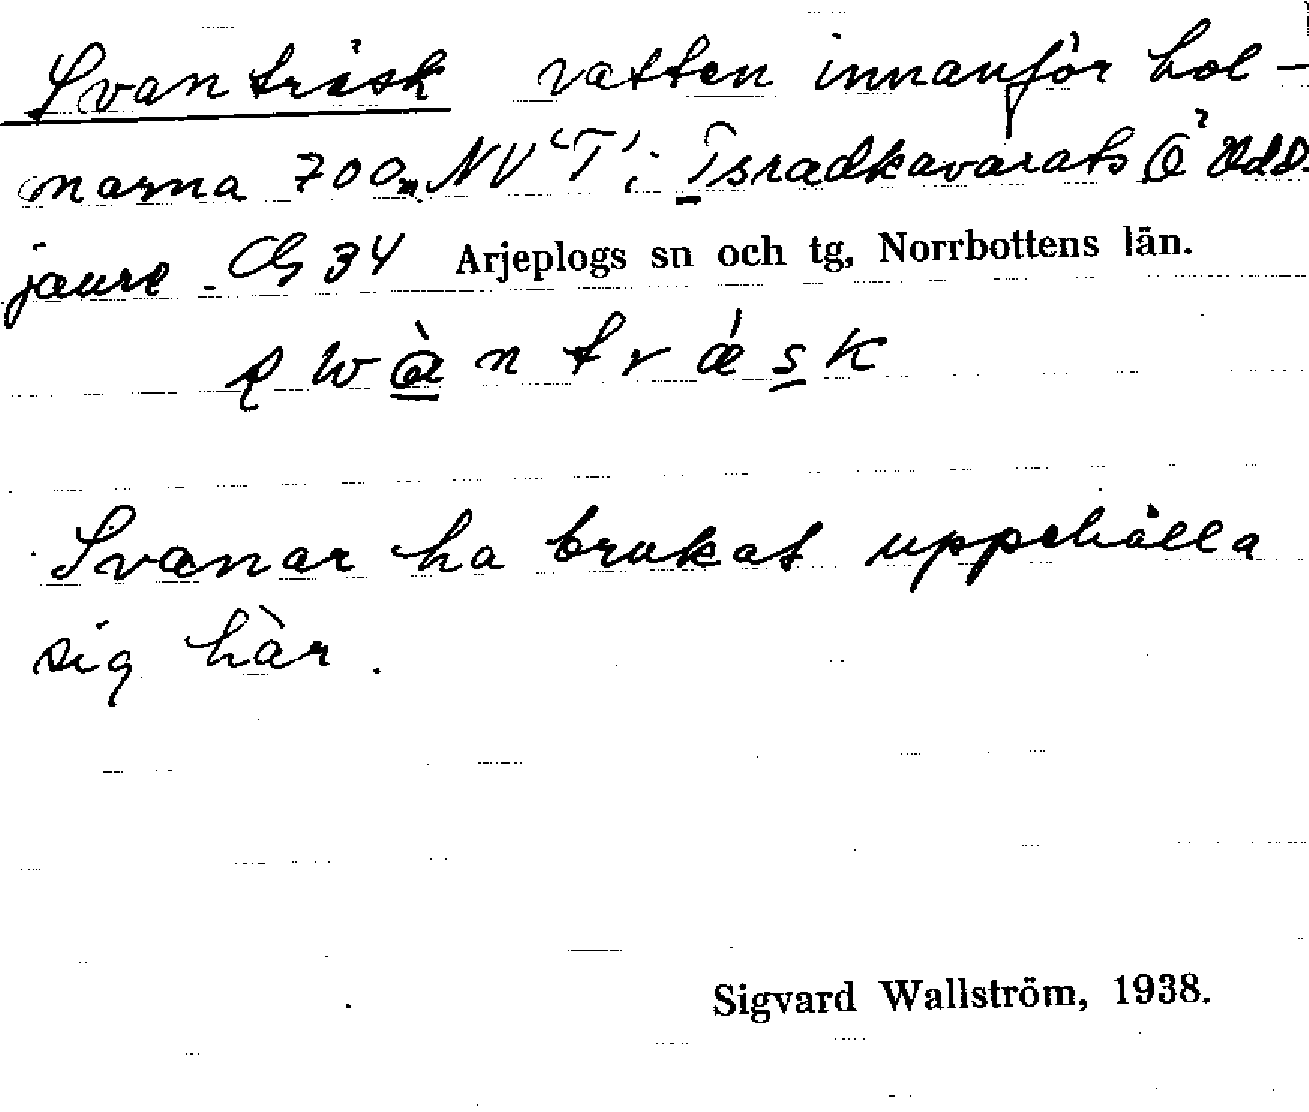 Svanträsk vatten innanför hol-
marna 700m NV 'T' i Tsradkavarats Ö Udd-
jaure CG 34 Arjeplogs sn och tg, Norrbottens län.
Svanar ha brukat uppehålla
sig här.
Sigvard Wallström, 1938.